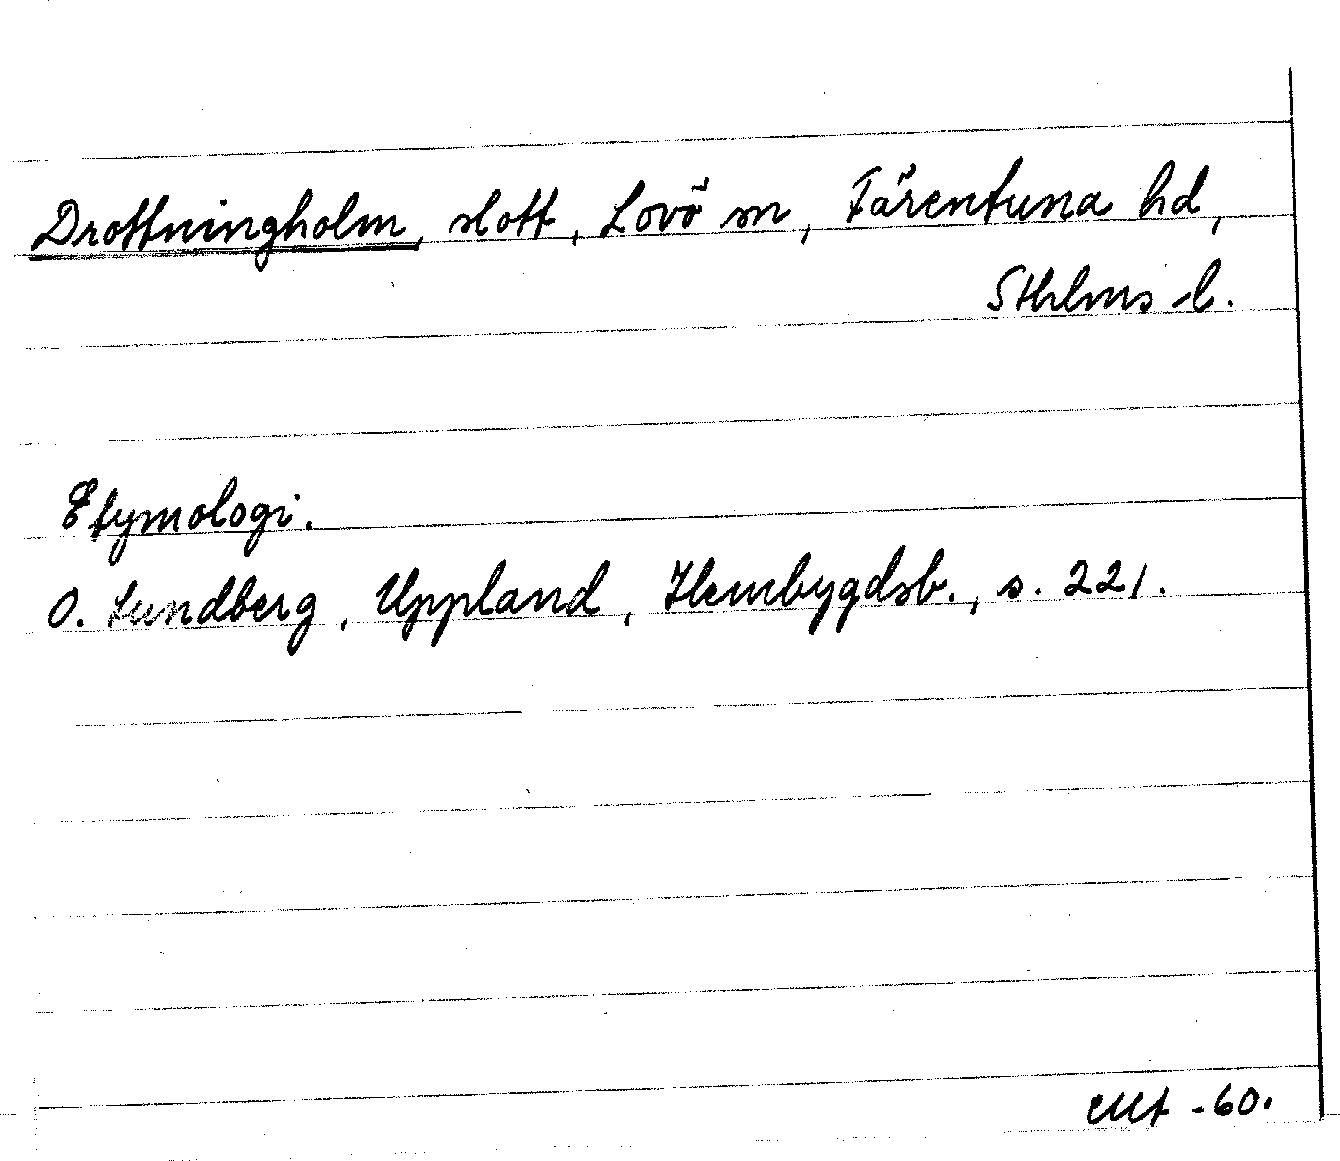 Drottningholm, slott, Lovö sn, Färentuna hd,
Sthlms l.
Etymologi.
O. Lundberg, Uppland, Hembygdsb., s. 221.
-60.